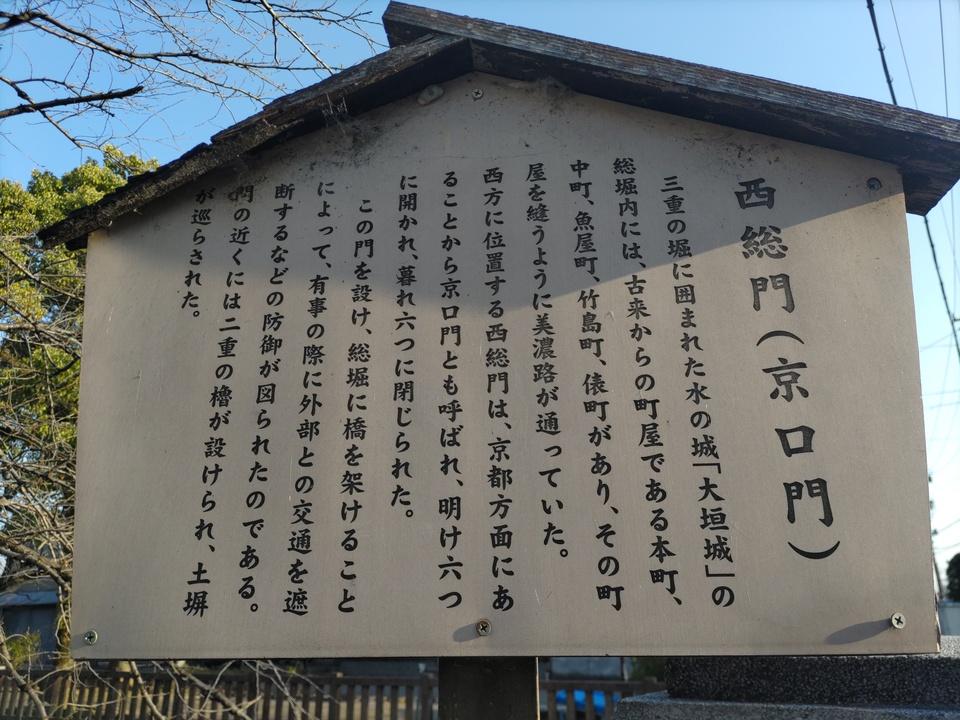 西総門(京口門)
三重の堀に囲まれた水の城「大垣城」の
総堀内には、古来からの町屋である本町、
中町、魚屋町、竹島町、俵町があり、その町
屋を縫うように美濃路が通っていた。
西方に位置する西総門は、京都方面にあ
ることから京口門とも呼ばれ、明け六つ
に開かれ、暮れ六つに閉じられた。
この門を設け、総堀に橋を架けること
によって、有事の際に外部との交通を遮
断するなどの防御が図られたのである。
門の近くには二重の櫓が設けられ、土塀
が巡らされた。